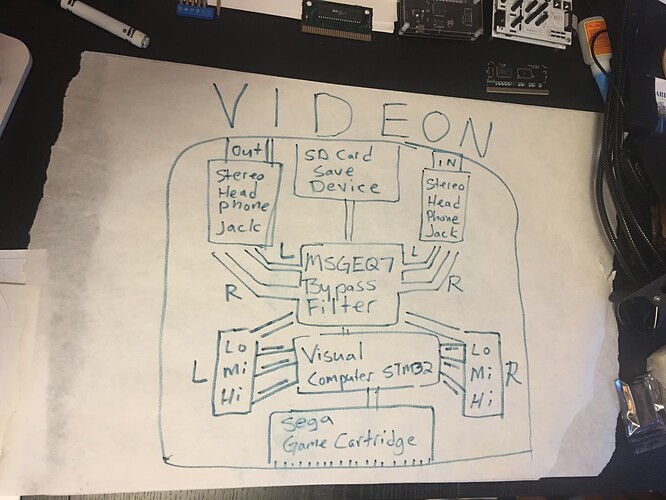 VIDEON
Out
Stereo
Head
phone
Jack
SD Card
Save
Device
IN
Stereo
Head
Phone
Jack
L
R
MSGEQ7
Bypass
Filter
L
R
L
Lo
Mi
Hi
Visual
Computer STM32
Lo
Mi
Hi
R
Sega
Game Cartridge